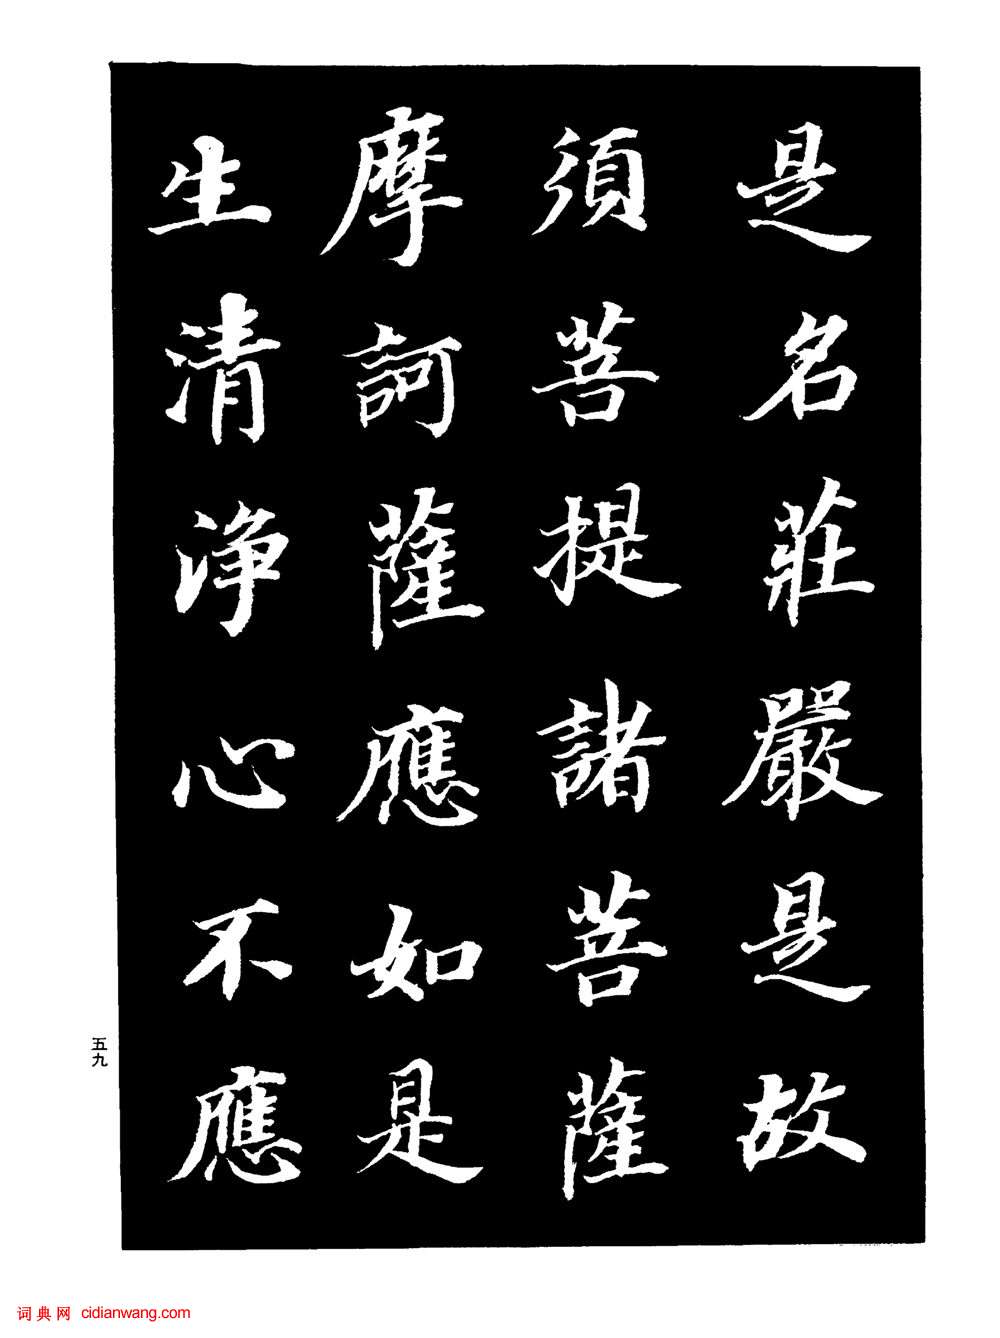 是名莊嚴是故
須菩提諸菩薩
摩訶薩應如是
生清淨心不應
五九
词典网 cidianwang.com